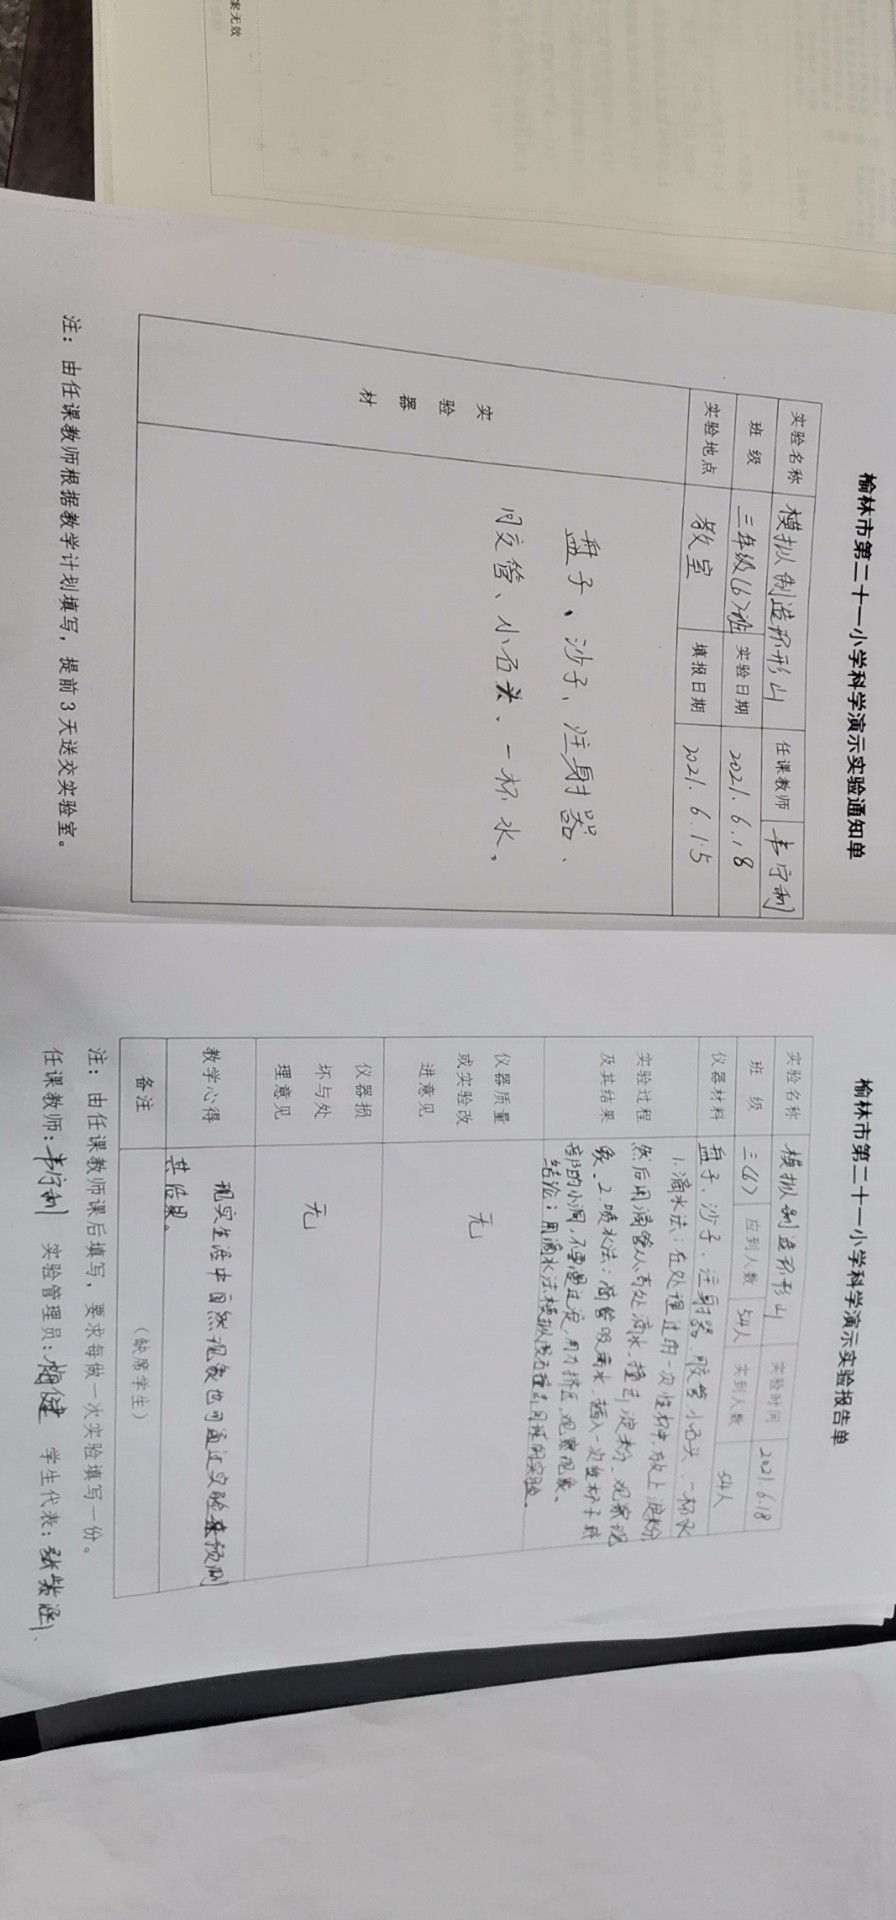 案无效
榆林市第二十一小学科学演示实验通知单
实验名称 模拟制造环形山 任课教师
班 级 三年级(6)班 实验日期 2021.6.18
实验地点 教室 填报日期 2021.6.15
实验器材
盘子、沙子、注射器、
胶管、小石头、一杯水。
注：由任课教师根据教学计划填写，提前3天送交实验室。
榆林市第二十一小学科学演示实验报告单
实验名称 模拟制造环形山 实验时间 2021.6.18
班 级 三(6) 应到人数 54人 实到人数 54人
仪器材料 盘子、沙子、注射器、胶管、小石头、一杯水
实验过程及其结果
1.滴水法：在处理过的一次性杯中，放上淀粉
然后用滴管从高处滴水，撞击淀粉，观察现
象。2.喷水法：滴管吸满水，插入一次性杯子底
部的小洞，不要漫过淀粉，用力挤压，观察现象。
结论：用滴水法模拟陨石撞击月球的实验。
仪器质量或实验改进意见 无
仪器损坏与处理意见 无
教学心得 现实生活中自然现象也可通过实验来预测
其结果。
备注 (缺席学生)
注：由任课教师课后填写，要求每做一次实验填写一份。
任课教师： 实验管理员： 学生代表：张紫涵